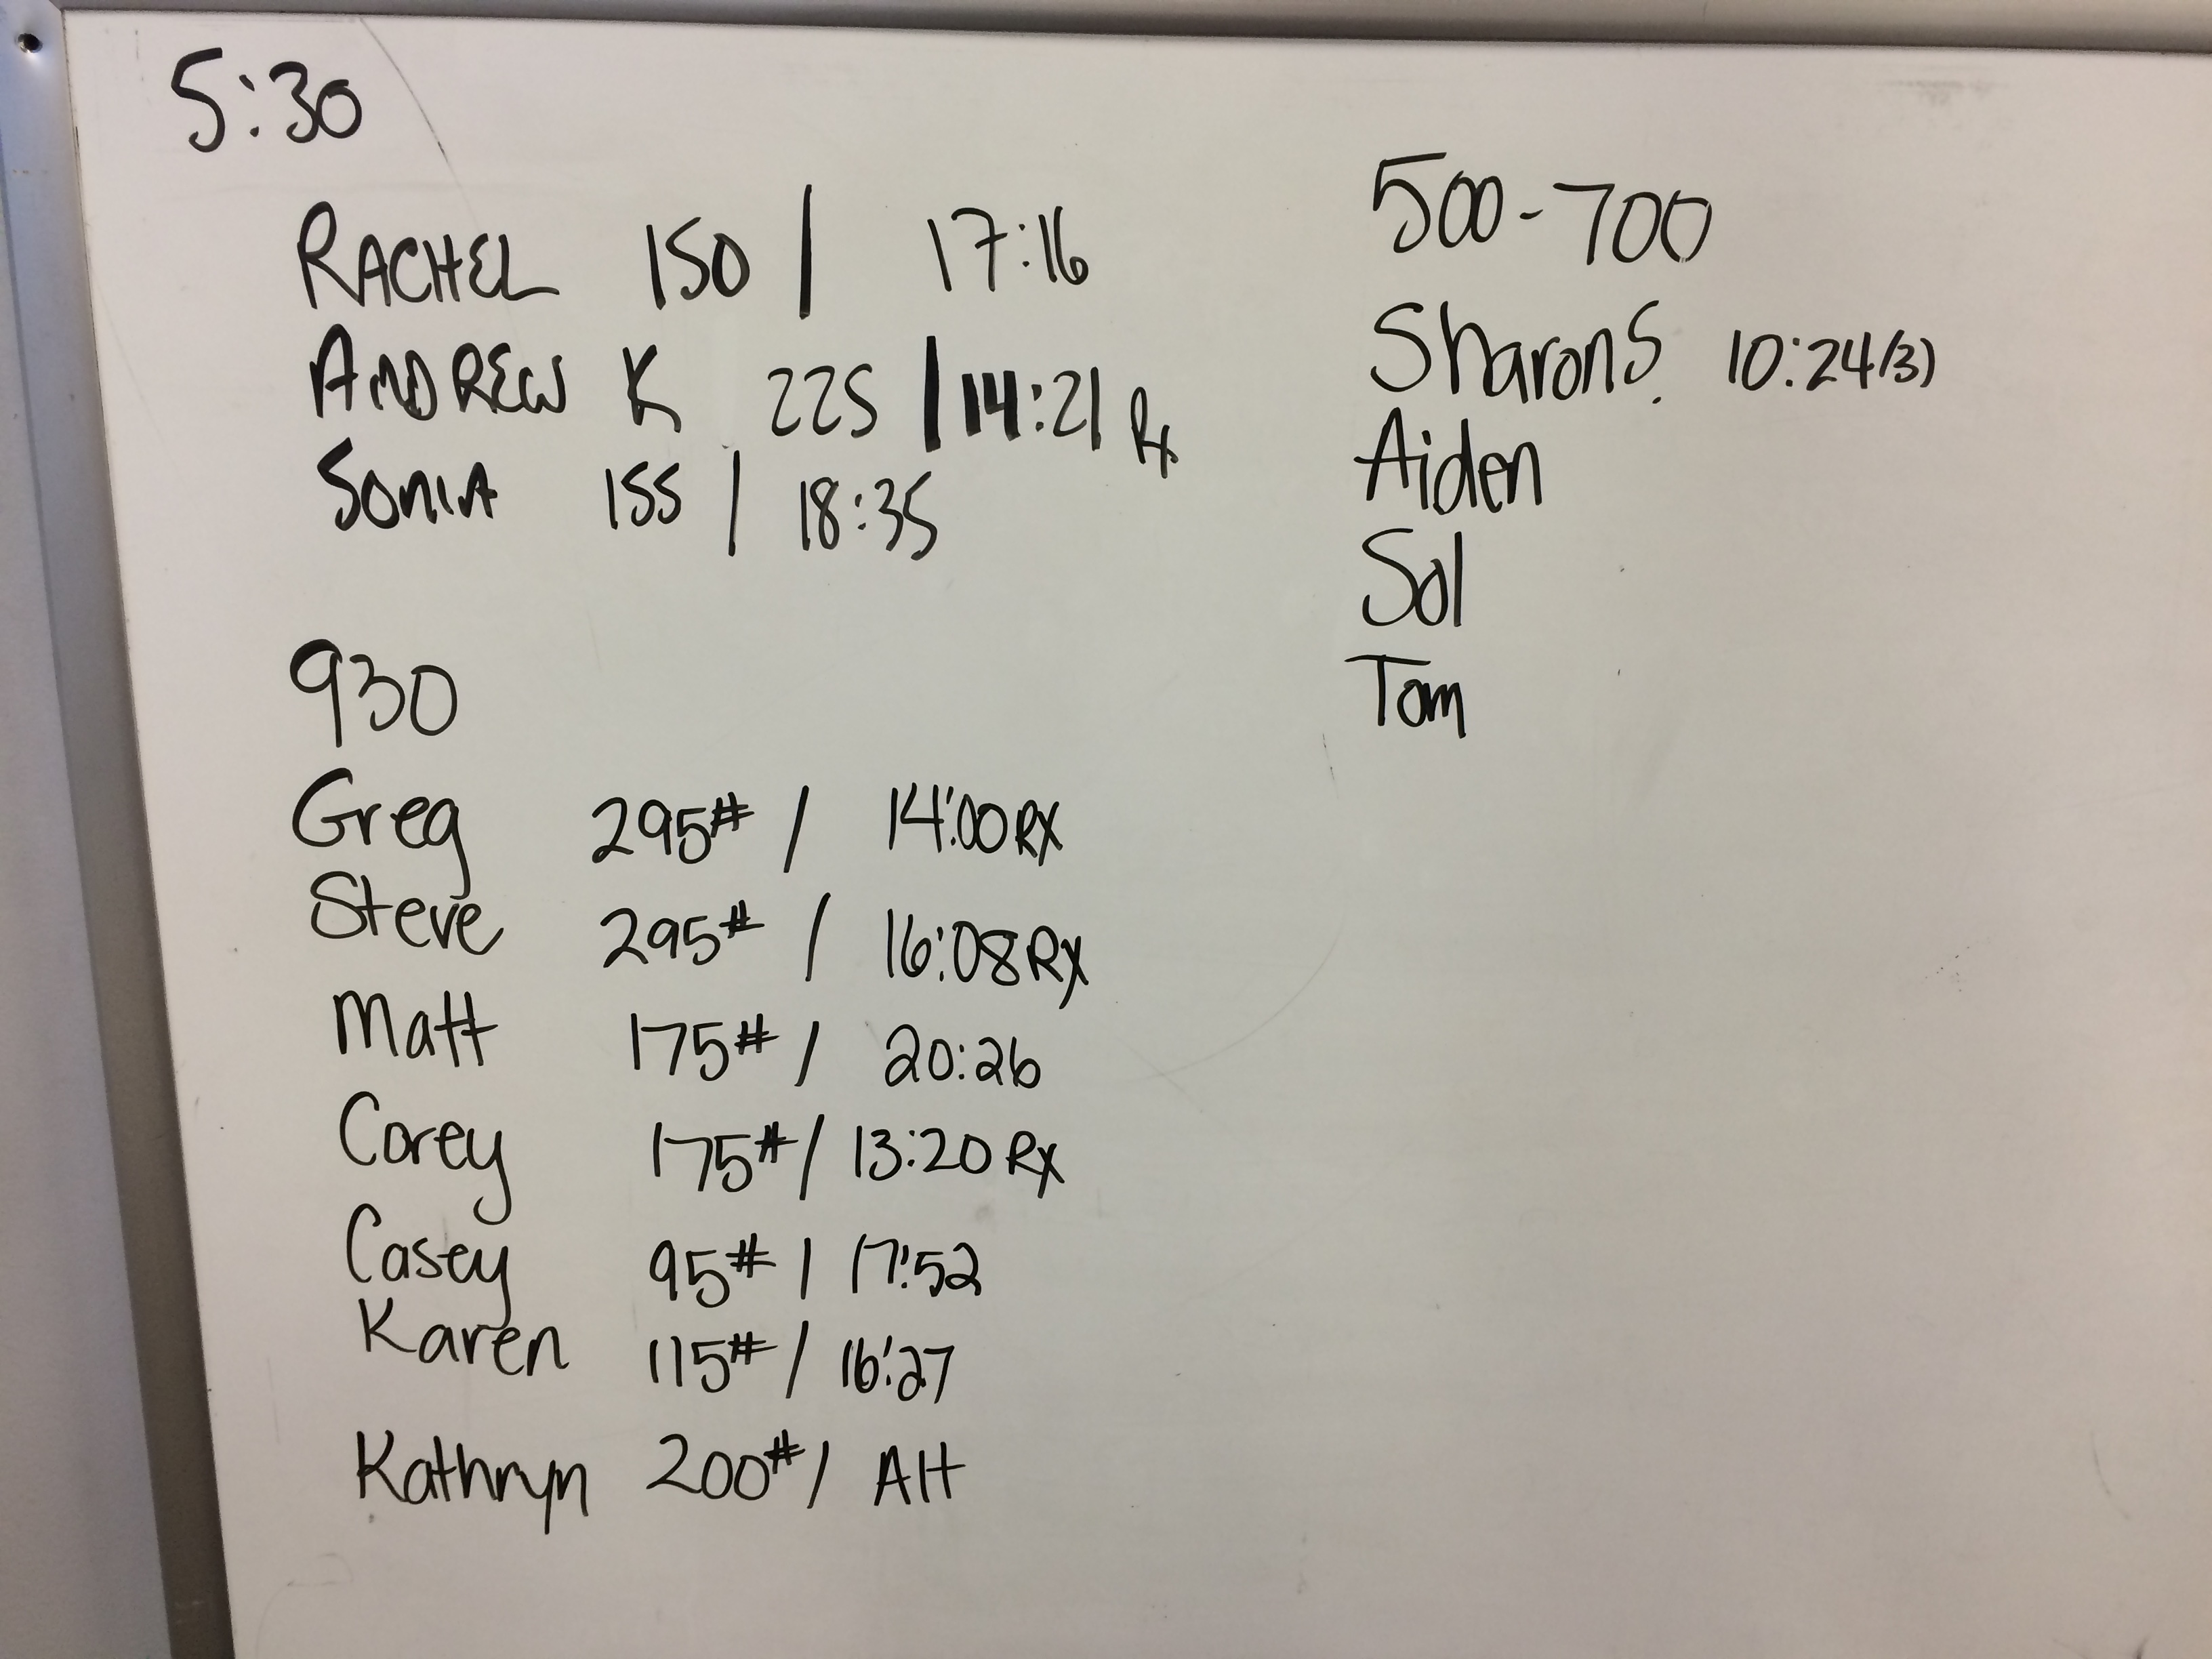 5:30
RACHEL 150 | 17:16
ANDREW K 225 | 14:21 Rx
SONIA 155 | 18:35
930
Greg 295# / 14:00 RX
Steve 295# / 16:08 Rx
Matt 175# / 20:26
Corey 175# / 13:20 Rx
Casey 95# | 17:52
Karen 115# / 16:27
Kathryn 200# / Alt
500-700
Sharon S. 10:24 (3)
Aiden
Sol
Tom